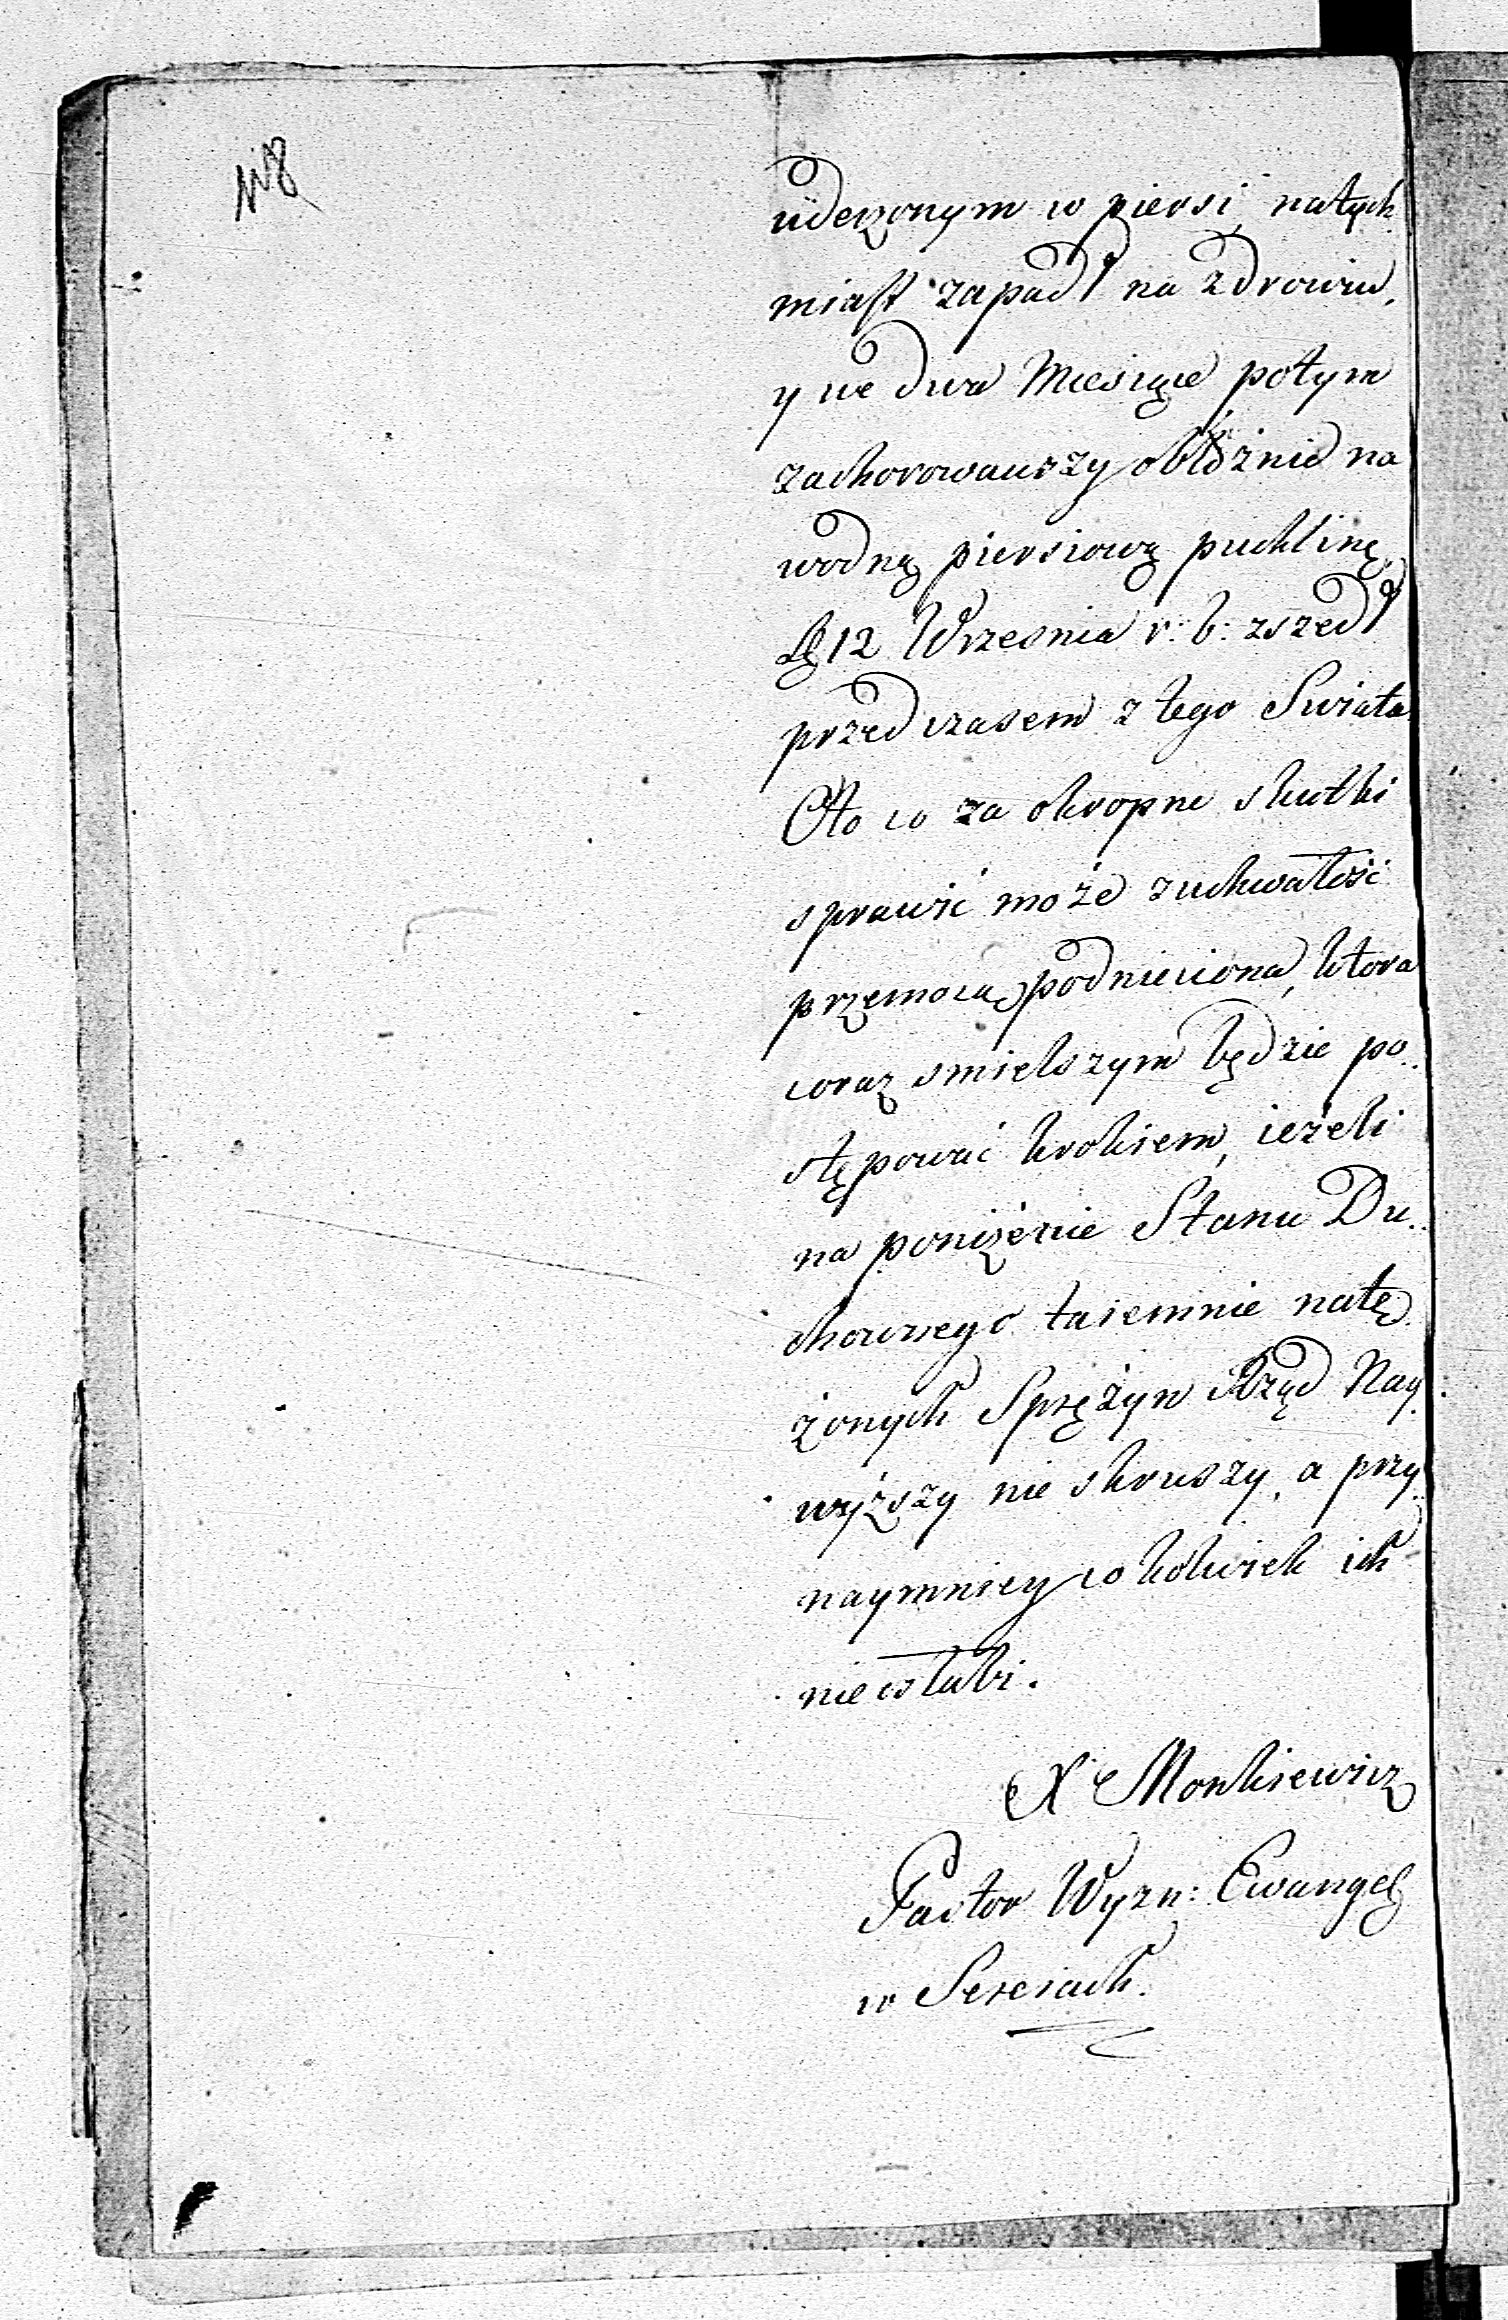 uderzonym w piersi, natych
miast zapadł na zdrowiu,
y we dwa Miesiące potym
zachorowawszy obłożnie na
wodną piersiową puchlinę
12 Wrzesnia r: b: zszedł
przed czasem z tego Swiata
Oto co za okropne skutki
sprawić może zuchwałość
przemocą podniecona, ktora
coraz smielszym będzie po..
stępować krokiem, ieżeli
na poniżenie Stanu Du..
chownego taiemnie natę
żonych Sprężyn Rząd Nay
wyższy nie skruszy, a przy
naymniey cokolwiek ich
nie osłabi.
X Monkiewicz
Pastor Wyzn: Ewangel
w Sereiach.